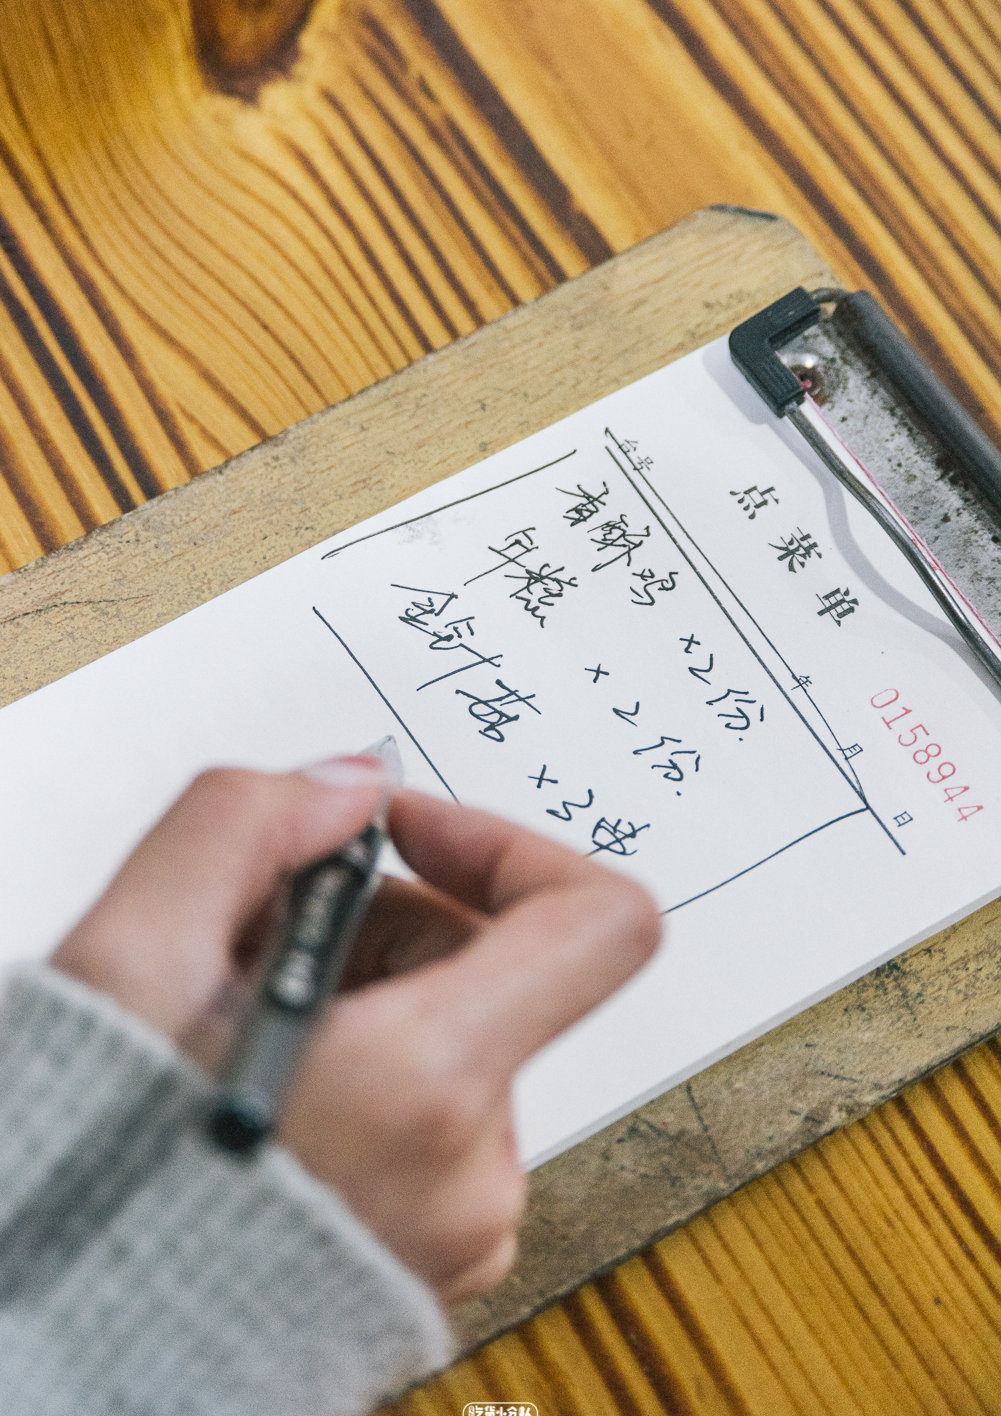 点菜单
0158944
台号 年 月 日
香酥鸡 ×2份.
年糕 ×2份.
金针菇 ×3串
吃货小分队